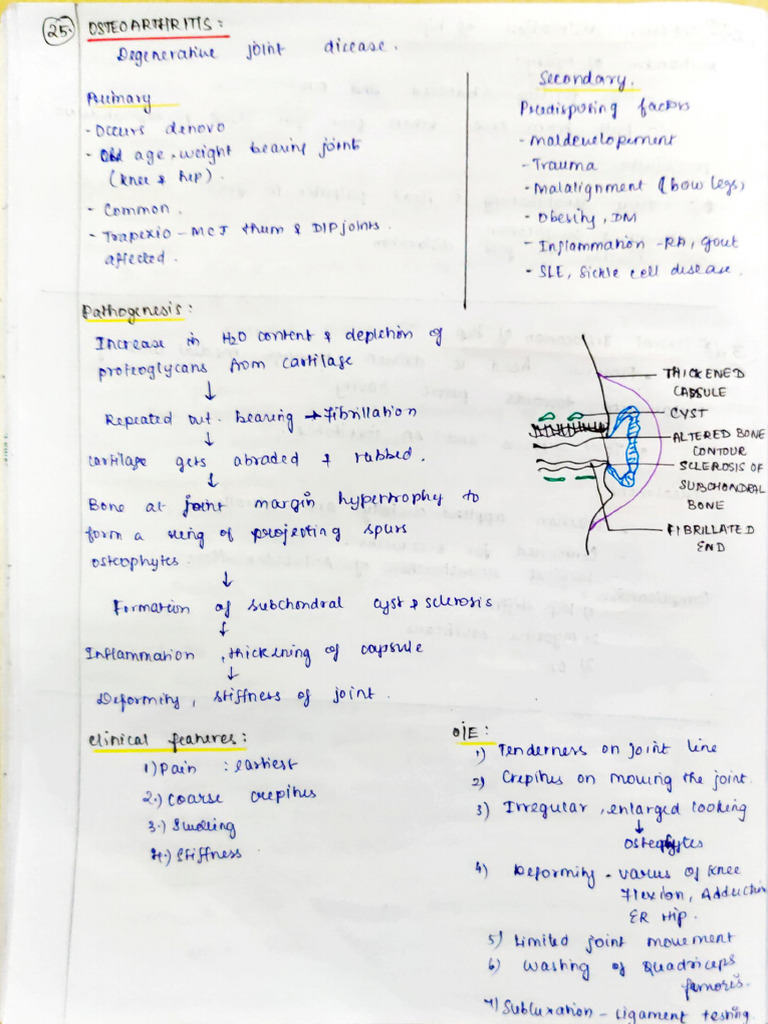 25. OSTEOARTHRITIS :
Degenerative joint disease.
Primary
- Occurs denovo
- Old age, weight bearing joint
(knee & hip).
- Common.
- Trapezio - MCJ thum & DIP joints
affected.
Secondary.
Predisposing factors
- maldevelopement
- Trauma
- Malalignment (bow legs)
- Obesity, DM
- Inflammation - RA, gout
- SLE, Sickle cell disease.
Pathogenesis :
Increase in H2O content & depletion of
proteoglycans from cartilage
↓
Repeated wt. bearing → Fibrillation
↓
cartilage gets abraded & rubbed.
↓
Bone at joint margin hypertrophy to
form a ring of projecting spurs
osteophytes.
↓
Formation of subchondral cyst & sclerosis
↓
Inflammation, thickening of capsule
↓
Deformity, stiffness of joint.
THICKENED
CAPSULE
CYST
ALTERED BONE
CONTOUR
SCLEROSIS OF
SUBCHONDRAL
BONE
FIBRILLATED
END
Clinical features :
1) Pain : earliest
2.) Coarse crepitus
3.) Swelling
4.) Stiffness
O/E :
1) Tenderness on joint line
2) Crepitus on moving the joint.
3) Irregular, enlarged looking
↓
Osteophytes
4) Deformity - varus of knee
Flexion, Adduction
ER Hip.
5) Limited joint movement
6) Washing of Quadriceps
femoris.
7) Subluxation - Ligament testing.